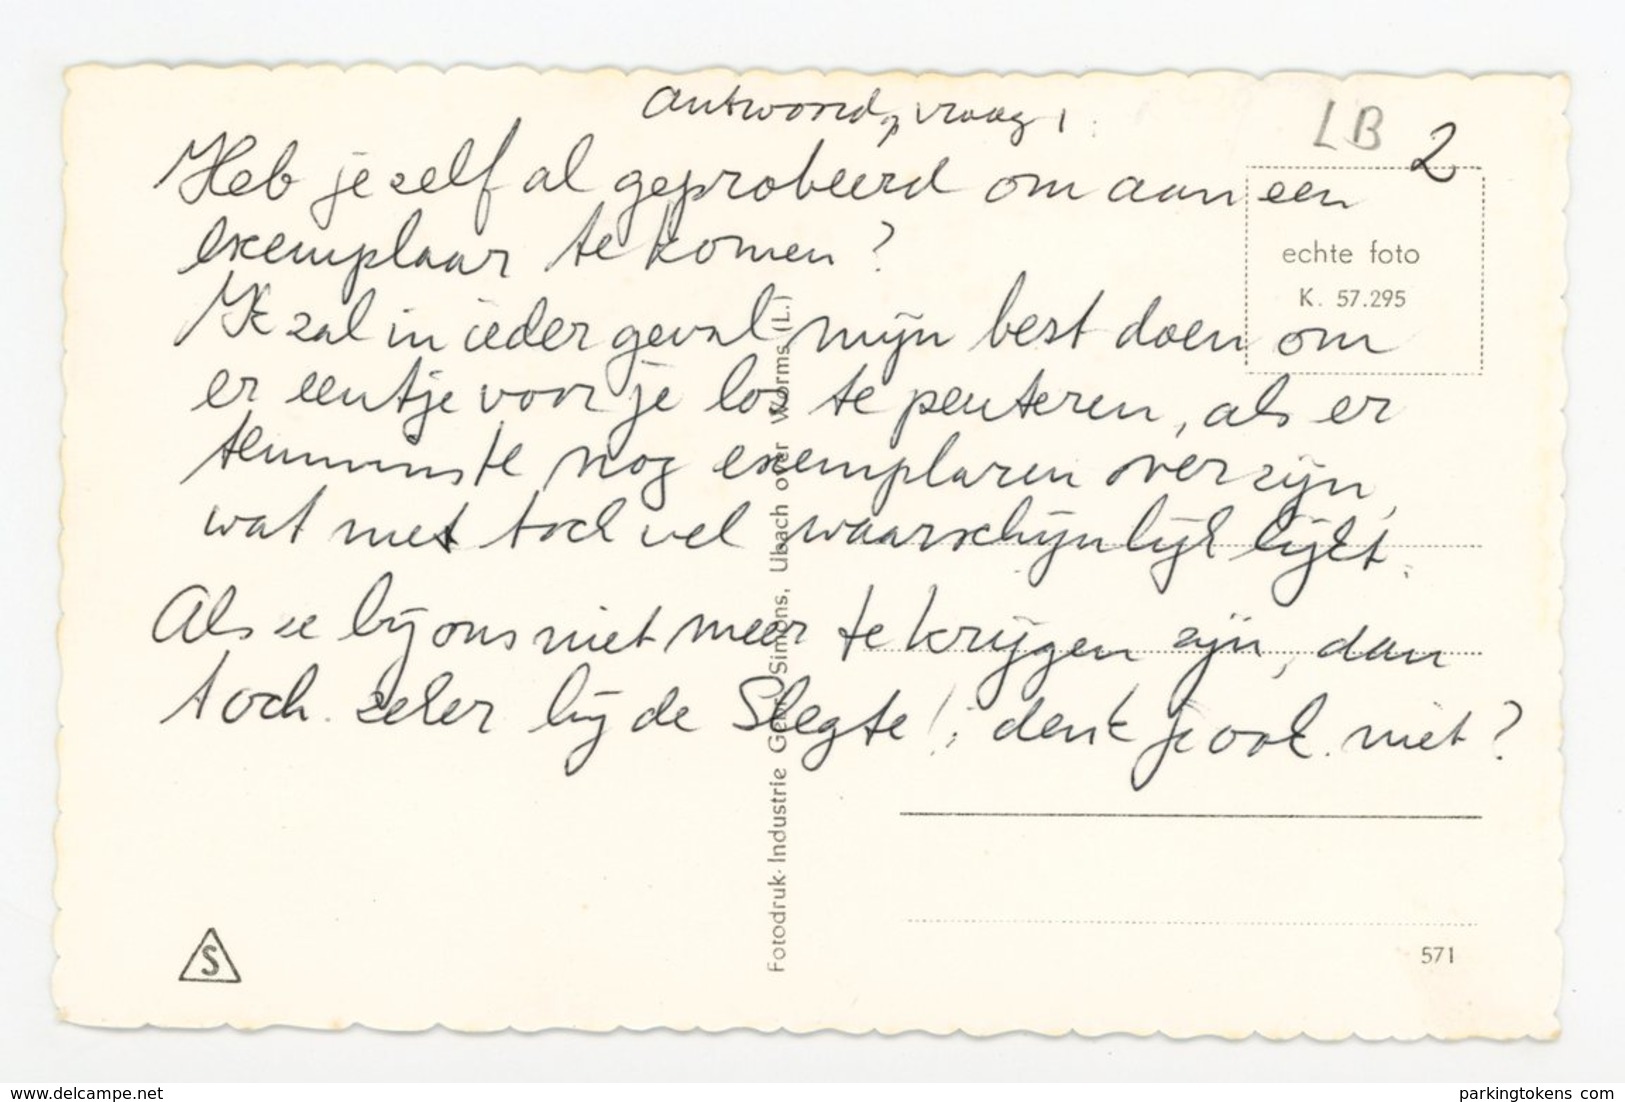 antwoord op vraag 1:
LB 2
Heb je zelf al geprobeerd om aan een
exemplaar te komen?
echte foto
K. 57.295
Ik zal in ieder geval mijn best doen om
er eentje voor je los te peuteren, als er
tenminste nog exemplaren over zijn,
wat met toch wel waarschijnlijk lijkt.
Als ze bij ons niet meer te krijgen zijn, dan
toch zeker bij de Slegte!; denk je ook niet?
Fotodruk-Industrie Gebr. Simons, Ubach over Worms (L.)
S
571
www.delcampe.net
parkingtokens.com